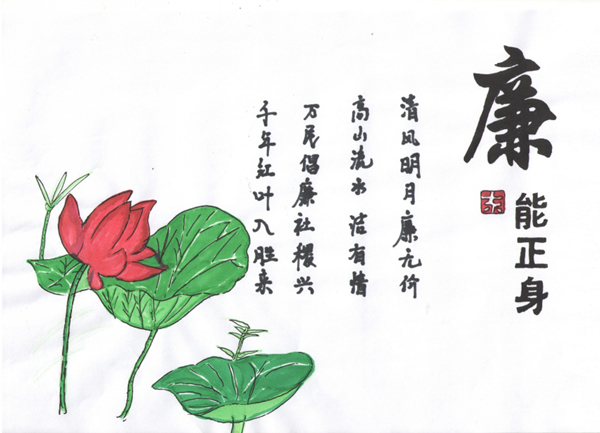 廉
能正身
清风明月廉无价
高山流水洁有情
万民倡廉社稷兴
千年红叶入胜来